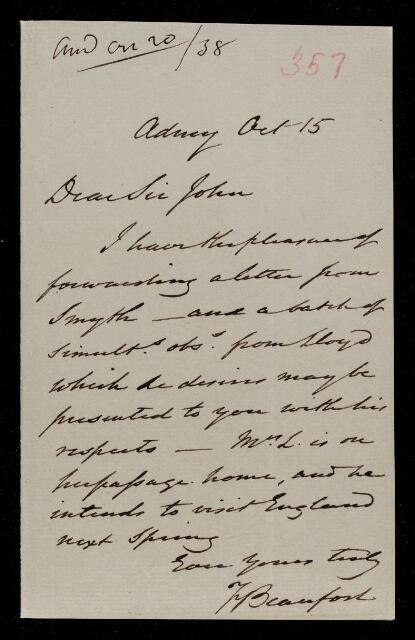 Ansd Oct 20/38
357
Admty Oct 15
Dear Sir John
I have the pleasure of
forwarding a letter from
Smyth — and a batch of
simults. obs. from Lloyd
which he desires may be
presented to you with his
respects — Mrs L. is on
her passage home, and he
intends to visit England
next Spring
Ever Yours truly
F Beaufort